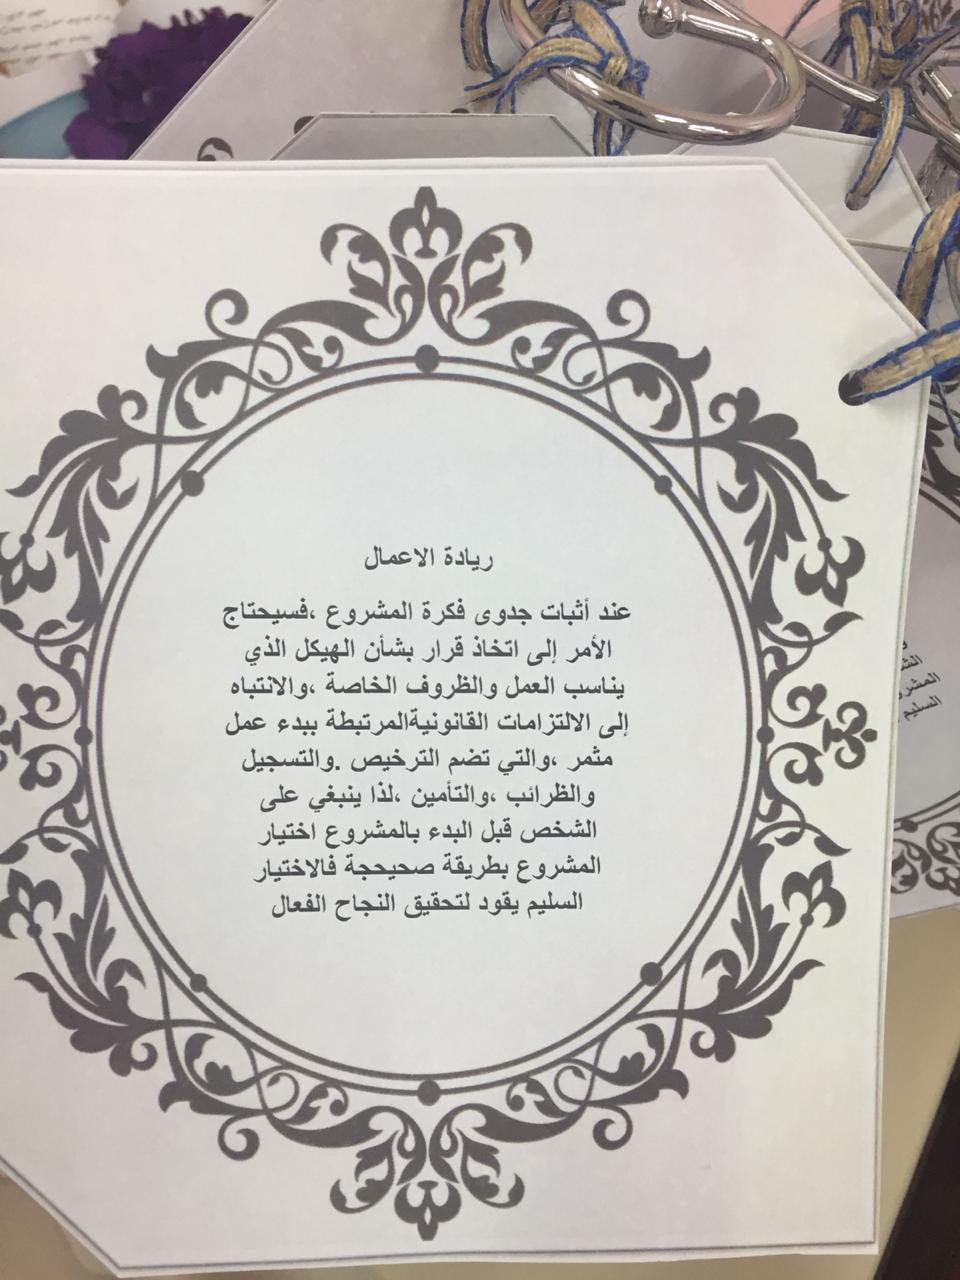 ريادة الاعمال
عند أثبات جدوى فكرة المشروع ،فسيحتاج
الأمر إلى اتخاذ قرار بشأن الهيكل الذي
يناسب العمل والظروف الخاصة ،والانتباه
إلى الالتزامات القانونيةالمرتبطة ببدء عمل
مثمر ،والتي تضم الترخيص .والتسجيل
والظرائب ،والتأمين ،لذا ينبغي على
الشخص قبل البدء بالمشروع اختيار
المشروع بطريقة صحيححة فالاختيار
السليم يقود لتحقيق النجاح الفعال